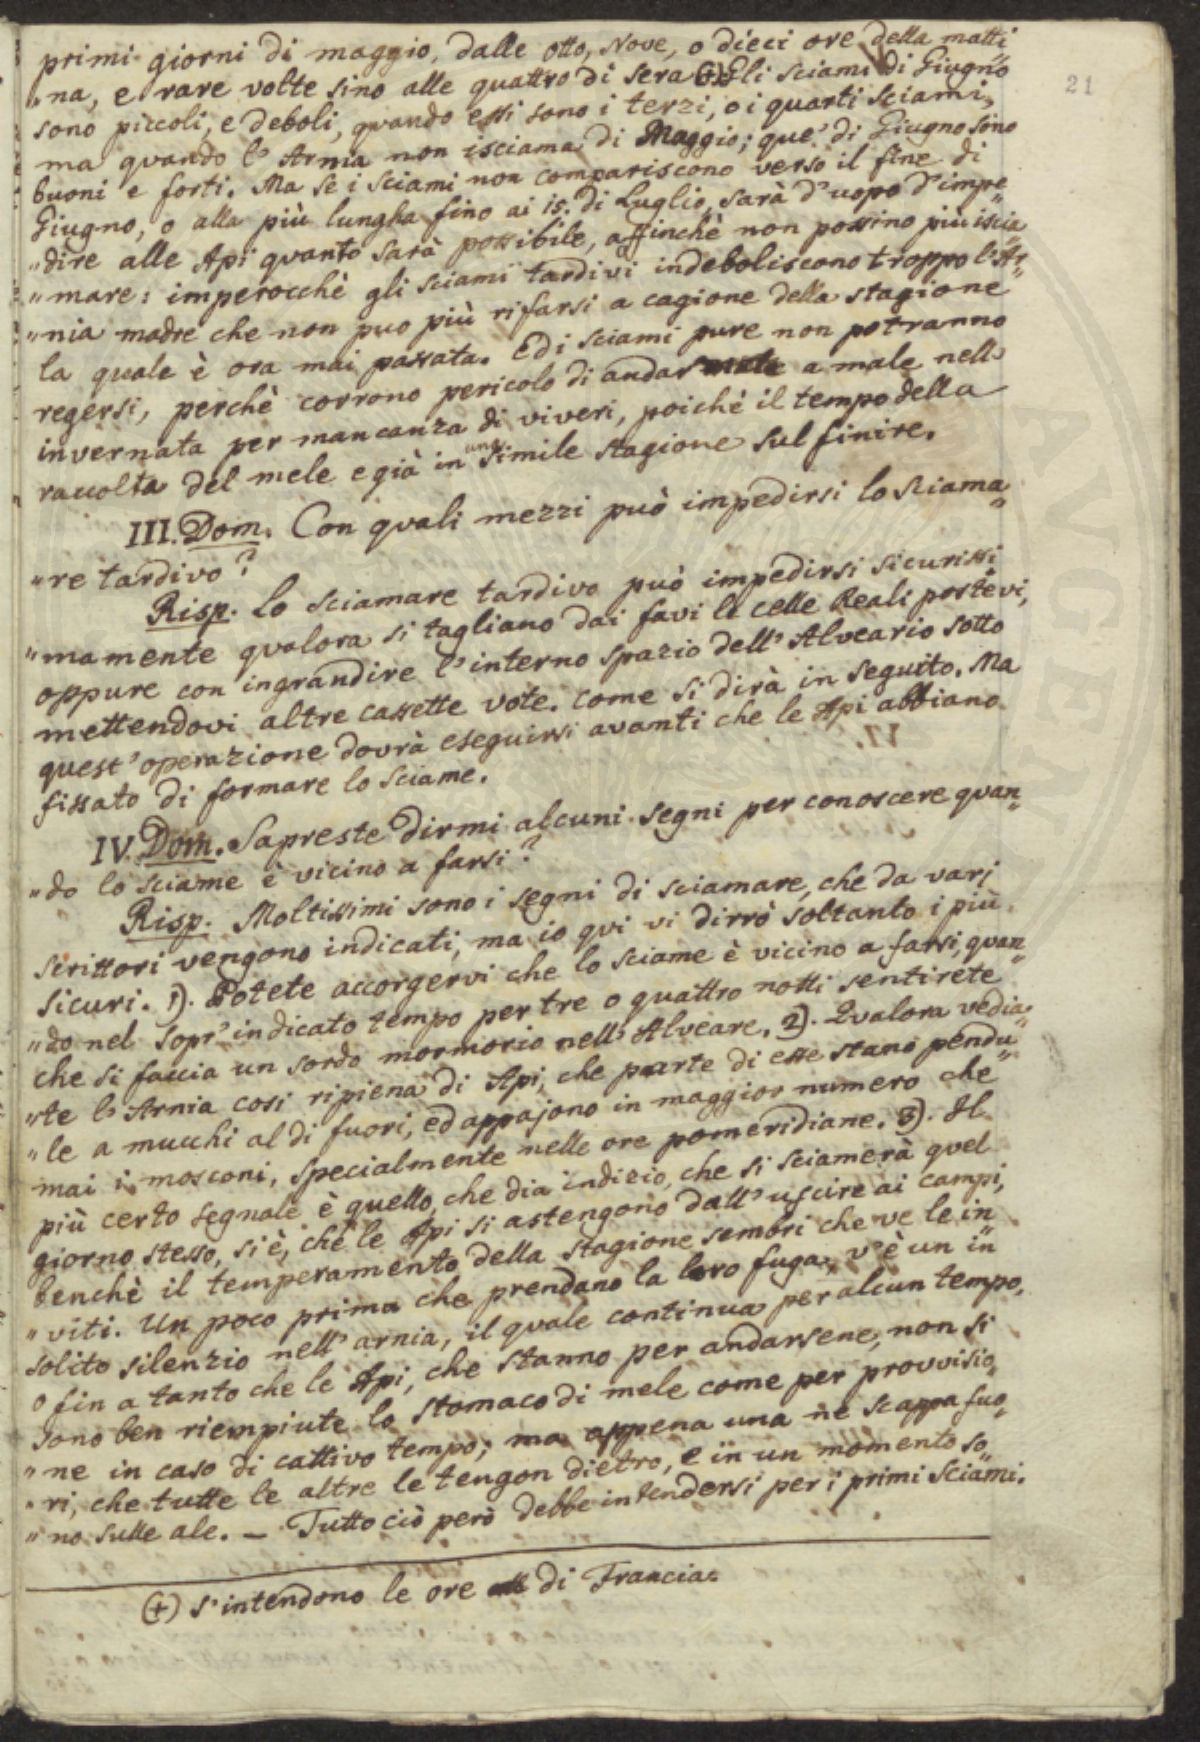 21
primi giorni di maggio, dalle otto, Nove, o dieci ore della matti„
„na, e rare volte sino alle quattro di sera (+) Gli sciami di Giugno
sono piccoli, e deboli, quando essi sono i terzi, o i quarti sciami,
ma quando l' Arnia non isciama di Maggio; que' di Giugno sono
buoni e forti. Ma se i sciami non compariscono verso il fine di
Giugno, o alla più lungha fino ai 15. di Luglio, sarà d'uopo d'impe„
„dire alle Api quanto sarà possibile, affinchè non possino più iscia„
„mare: imperocchè gli sciami tardivi indeboliscono troppo l'Ar„
„nia madre che non puo più rifarsi a cagione della stagione
la quale è ora mai passata. Ed i sciami pure non potranno
regersi, perchè corrono pericolo di andar a male nell'
invernata per mancanza di viveri, poichè il tempo della
raccolta del mele e già in una simile stagione sul finire.
III. Dom. Con quali mezzi può impedirsi lo sciama„
„re tardivo?
Risp. Lo sciamare tardivo può impedirsi sicurissi„
„mamente qualora si tagliano dai favi le celle Reali postevi,
oppure con ingrandire l'interno spazio dell' Alveario sotto
mettendovi altre cassette vote. come si dirà in seguito. Ma
quest' operazione dovrà eseguirsi avanti che le Api abbiano
fissato di formare lo sciame.
IV. Dom. Sapreste dirmi alcuni segni per conoscere quan„
„do lo sciame è vicino a farsi?
Risp. Moltissimi sono i segni di sciamare, che da varj
scrittori vengono indicati, ma io qui vi dirrò soltanto i più
sicuri. 1). Potete accorgervi che lo sciame è vicino a farsi, quan„
„do nel sopr' indicato tempo per tre o quattro notti sentirete
che si faccia un sordo mormorio nell' Alveare. 2). Qualora vedia„
„te l' Arnia cosi ripiena di Api, che parte di esse stano pendu„
„le a mucchi al di fuori, ed appajono in maggior numero che
mai i mosconi, specialmente nelle ore pomeridiane. 3). Il
più certo segnale è quello, che dia indizio, che si sciamerà quel
giorno stesso, si è, che le Api si astengono dall' uscire ai campi,
benchè il temperamento della stagione sembri che ve le in„
„viti. Un poco prima che prendano la loro fuga, v'è un in„
solito silenzio nell' arnia, il quale continua per alcun tempo,
o fin a tanto che le Api, che stanno per andarsene, non si
sono ben riempiute lo stomaco di mele come per provvisio„
„ne in caso di cattivo tempo; ma appena una ne scappa fuo„
„ri, che tutte le altre le tengon dietro, e in un momento so„
„no sulle ale. — Tutto ciò però debbe intendersi per i primi sciami.
(+) S'intendono le ore di Francia.